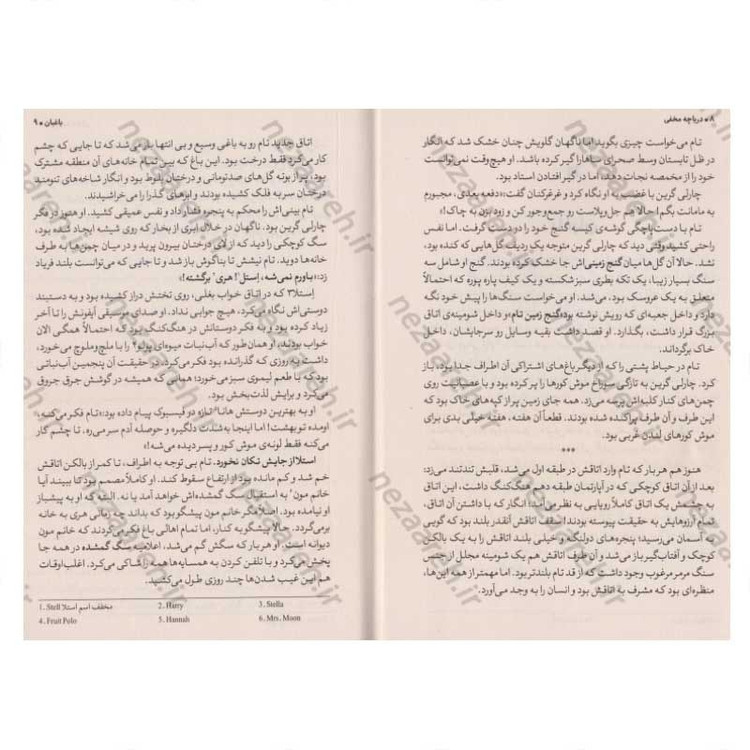 ۸ • دریاچه مخفی
تام می‌خواست چیزی بگوید اما ناگهان گلویش چنان خشک شد که انگار
در ظل تابستان وسط صحرای صاهارا گیر کرده باشد. او هیچ‌وقت نمی‌توانست
خود را از مخمصه نجات دهد، اما در گیر افتادن استاد بود.
چارلی گرین با غضب به او نگاه کرد و غرغرکنان گفت: «دفعه بعدی، مجبورم
به مامانت بگم! حالا هم حل‌وبلاست رو جمع‌وجور کن و زود بزن به چاک!»
تام با دستپاچگی گوشه‌ی کیسه گنج خود را در دست گرفت. اما نفس
راحتی کشید وقتی دید که چارلی گرین متوجه یک ردیف گل‌هایی که کنده بود،
نشد. حالا آن گل‌ها میان گنج زمینی‌اش جا خشک کرده بودند. گنج او شامل سه
سنگ بسیار زیبا، یک تکه بطری سبز شکسته و یک کیف پاره پوره که احتمالاً
متعلق به یک عروسک بود، می‌شد. او می‌خواست سنگ‌ها را پیش خود نگه
دارد و داخل جعبه‌ای که رویش نوشته بود: «گنج زمین تام» و داخل شومینه‌ی اتاق
بزرگ قرار داشت، بگذارد. او قصد داشت بقیه وسایل رو سرجایشان، داخل
خاک برگرداند.
تام در حیاط پشتی را که از دیگر باغ‌های اشتراکی آن اطراف جدا بود، باز
کرد. چارلی گرین به تازگی سوراخ موش کورها را پر کرده بود و با عصبانیت روی
چمن‌های کنار کلبه‌اش پرسه می‌زد. همه جای زمین پر از کپه‌های خاک بود که
این طرف و آن طرف پراکنده شده بودند. قطعاً آن هفته، هفته خیلی بدی برای
موش کورهای لندن غربی بود.
***
هنوز هم هر بار که تام وارد اتاقش در طبقه اول می‌شد، قلبش تند‌تند می‌زد؛
بعد از آن اتاق کوچکی که در آپارتمان طبقه دهم هنگ‌کنگ داشت، این اتاق
به چشمش یک اتاق کاملاً رویایی به نظر می‌آمد؛ انگار که با داشتن آن اتاق،
تمام آرزوهایش به حقیقت پیوسته بودند! سقف اتاقش آنقدر بلند بود که گویی
به آسمان می‌رسید؛ پنجره‌های دولنگه و خیلی بلند اتاقش را به یک بالکن
کوچک و آفتاب‌گیر باز می‌شد و آن طرف اتاقش هم یک شومینه مجلل از جنس
سنگ مرمر مرغوب وجود داشت که از قد تام بلندتر بود. اما مهمتر از همه این‌ها،
منظره‌ای بود که مشرف به اتاقش بود و انسان را به وجد می‌آورد.
باغبان • ۹
اتاق جدید تام رو به باغی وسیع و بی انتها باز می‌شد که تا جایی که چشم
کار می‌کرد فقط درخت بود. این باغ که بین تمام خانه‌های آن منطقه مشترک
بود، پر از بوته گل‌های صدتومانی و درختان بلوط بود و انگار شاخه‌های تنومند
درختان سر به فلک کشیده بودند و ابرهای گذرا را می‌خراشیدند.
تام بینی‌اش را محکم به پنجره فشار داد و نفس عمیقی کشید. او هنوز در فکر
چارلی گرین بود. ناگهان در خلال ابری از بخار که روی شیشه ایجاد شده بود،
سگ کوچکی را دید که از لای درختان بیرون پرید و در میان چمن‌ها به طرف
خانه‌ها دوید. تام نیشش تا بناگوش باز شد و تا جایی که می‌توانست بلند فریاد
زد: «باورم نمی‌شه، اِستل¹! هری² برگشته!»
اِستلا³ که در اتاق خواب بغلی، روی تختش دراز کشیده بود و به دستبند
دوستی‌اش نگاه می‌کرد، هیچ جوابی نداد. او صدای موسیقی آیفونش را تا آخر
زیاد کرده بود و به فکر دوستانش در هنگ‌کنگ بود که احتمالاً همگی الان
خواب بودند. او همان‌طور که آب‌نبات میوه‌ای پولو⁴ را با ملچ‌وملوچ می‌خورد،
داشت به روزی که گذرانده بود فکر می‌کرد. در حقیقت آن پنجمین آب‌نباتی
بود که با طعم لیموی سبز می‌خورد؛ همانی که همیشه در گوشش جرق جروق
می‌کرد و برایش لذت‌بخش بود.
او به بهترین دوستش هانا⁵ تازه در فیسبوک پیام داده بود: «تام فکر می‌کنه،
اومده تو بهشت! اما اینجا به‌شدت دلگیره و حوصله آدم سر می‌ره. تا چشم کار
می‌کنه فقط لونه‌ی موش کور و پسر دیده می‌شه!»
استلا از جایش تکان نخورد. تام بی توجه به اطراف، تا کمر از بالکن اتاقش
خم شد و کم مانده بود از ارتفاع سقوط کند. او کاملاً مصمم بود تا ببیند آیا
خانم مون⁶ به استقبال سگ گمشده‌اش خواهد آمد یا نه. البته که او به پیشباز
او نیامده بود. اصلاً مگر خانم مون پیشگو بود که بداند چه زمانی هری به خانه
برمی‌گردد. حالا پیشگو به کنار، اما تمام اهالی باغ فکر می‌کردند که خانم مون
دیوانه است. او هر بار که سگش گم می‌شد، اعلامیه سگ گمشده در همه جا
پخش می‌کرد و با تلفن کردن به همسایه‌ها همه را شاکی می‌کرد. اغلب اوقات
هم این غیب شدن‌ها چند روزی طول می‌کشید.
1. Stell مخفف اسم استلا 2. Harry 3. Stella
4. Fruit Polo 5. Hannah 6. Mrs. Moon
nezaareh.ir